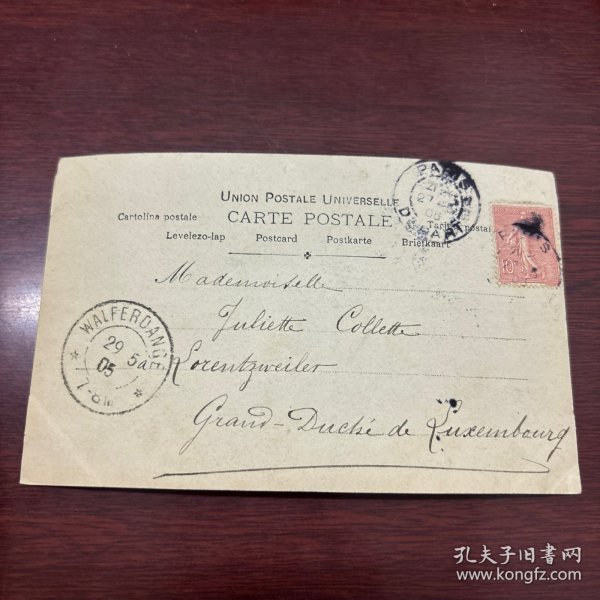 UNION POSTALE UNIVERSELLE
CARTE POSTALE
Cartolina postale
Levelezo-lap Postcard Postkarte Briefkaart
PARIS
27
05
DEPART
10
Mademoiselle
Juliette Collette
Lorentzweiler
Grand-Duché de Luxembourg
WALFERDANGE
29 5
05
孔夫子旧书网
www.kongfz.com